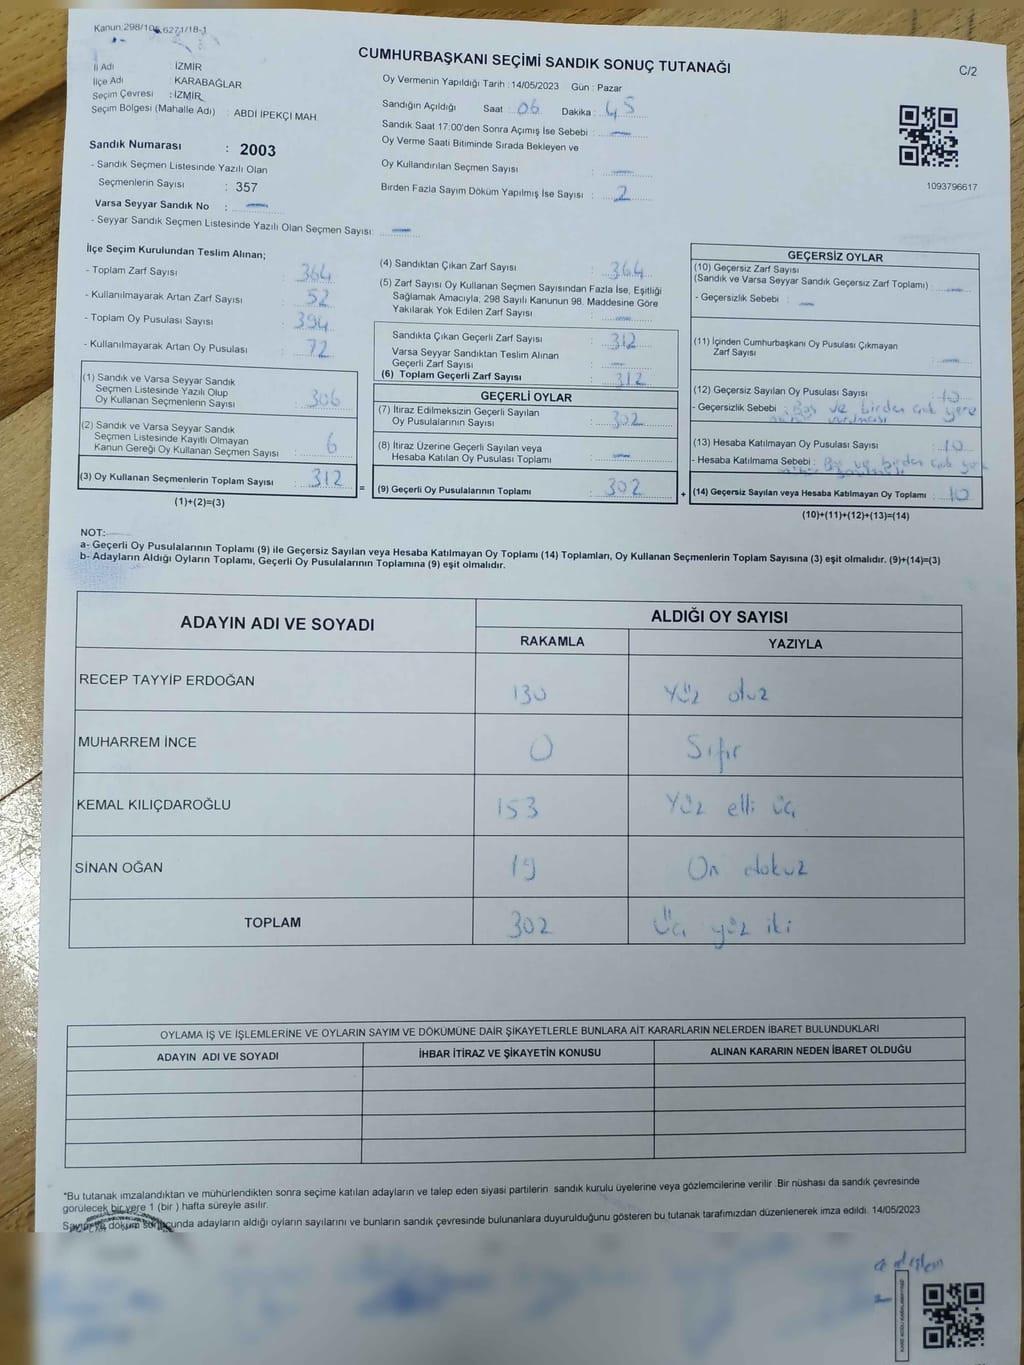 Kanun:298/105,6271/18-1
CUMHURBAŞKANI SEÇİMİ SANDIK SONUÇ TUTANAĞI
C/2
İl Adı : İZMİR
İlçe Adı : KARABAĞLAR
Seçim Çevresi : İZMİR
Seçim Bölgesi (Mahalle Adı) : ABDİ İPEKÇİ MAH.
Oy Vermenin Yapıldığı Tarih :14/05/2023 Gün : Pazar
Sandığın Açıldığı Saat : 06 Dakika : 45
Sandık Saat 17:00'den Sonra Açımış İse Sebebi : —
Oy Verme Saati Bitiminde Sırada Bekleyen ve
Oy Kullandırılan Seçmen Sayısı : —
Birden Fazla Sayım Döküm Yapılmış İse Sayısı : 2
1093796617
Sandık Numarası : 2003
- Sandık Seçmen Listesinde Yazılı Olan
Seçmenlerin Sayısı : 357
Varsa Seyyar Sandık No : —
- Seyyar Sandık Seçmen Listesinde Yazılı Olan Seçmen Sayısı: —
İlçe Seçim Kurulundan Teslim Alınan;
- Toplam Zarf Sayısı : 364
- Kullanılmayarak Artan Zarf Sayısı : 52
- Toplam Oy Pusulası Sayısı : 394
- Kullanılmayarak Artan Oy Pusulası : 72
(1) Sandık ve Varsa Seyyar Sandık
Seçmen Listesinde Yazılı Olup
Oy Kullanan Seçmenlerin Sayısı : 306
(2) Sandık ve Varsa Seyyar Sandık
Seçmen Listesinde Kayıtlı Olmayan
Kanun Gereği Oy Kullanan Seçmen Sayısı : 6
(3) Oy Kullanan Seçmenlerin Toplam Sayısı : 312
(1)+(2)=(3)
=
(4) Sandıktan Çıkan Zarf Sayısı : 364
(5) Zarf Sayısı Oy Kullanan Seçmen Sayısından Fazla İse, Eşitliği
Sağlamak Amacıyla, 298 Sayılı Kanunun 98. Maddesine Göre
Yakılarak Yok Edilen Zarf Sayısı : —
Sandıkta Çıkan Geçerli Zarf Sayısı : 312
Varsa Seyyar Sandıktan Teslim Alınan
Geçerli Zarf Sayısı : —
(6) Toplam Geçerli Zarf Sayısı : 312
GEÇERLİ OYLAR
(7) İtiraz Edilmeksizin Geçerli Sayılan
Oy Pusulalarının Sayısı : 302
(8) İtiraz Üzerine Geçerli Sayılan veya
Hesaba Katılan Oy Pusulası Toplamı : —
(9) Geçerli Oy Pusulalarının Toplamı : 302
+
GEÇERSİZ OYLAR
(10) Geçersiz Zarf Sayısı
(Sandık ve Varsa Seyyar Sandık Geçersiz Zarf Toplamı) : —
- Geçersizlik Sebebi : —
(11) İçinden Cumhurbaşkanı Oy Pusulası Çıkmayan
Zarf Sayısı : —
(12) Geçersiz Sayılan Oy Pusulası Sayısı : 10
- Geçersizlik Sebebi : Boş ve birden çok yere
(13) Hesaba Katılmayan Oy Pusulası Sayısı : 10
- Hesaba Katılmama Sebebi : Boş ve birden çok yere
(14) Geçersiz Sayılan veya Hesaba Katılmayan Oy Toplamı : 10
(10)+(11)+(12)+(13)=(14)
NOT:
a- Geçerli Oy Pusulalarının Toplamı (9) ile Geçersiz Sayılan veya Hesaba Katılmayan Oy Toplamı (14) Toplamları, Oy Kullanan Seçmenlerin Toplam Sayısına (3) eşit olmalıdır. (9)+(14)=(3)
b- Adayların Aldığı Oyların Toplamı, Geçerli Oy Pusulalarının Toplamına (9) eşit olmalıdır.
ADAYIN ADI VE SOYADI ALDIĞI OY SAYISI
RAKAMLA YAZIYLA
RECEP TAYYİP ERDOĞAN 130 Yüz otuz
MUHARREM İNCE 0 Sıfır
KEMAL KILIÇDAROĞLU 153 Yüz elli üç
SİNAN OĞAN 19 On dokuz
TOPLAM 302 Üç yüz iki
OYLAMA İŞ VE İŞLEMLERİNE VE OYLARIN SAYIM VE DÖKÜMÜNE DAİR ŞİKAYETLERLE BUNLARA AİT KARARLARIN NELERDEN İBARET BULUNDUKLARI
ADAYIN ADI VE SOYADI İHBAR İTİRAZ VE ŞİKAYETİN KONUSU ALINAN KARARIN NEDEN İBARET OLDUĞU
*Bu tutanak imzalandıktan ve mühürlendikten sonra seçime katılan adayların ve talep eden siyasi partilerin sandık kurulu üyelerine veya gözlemcilerine verilir .Bir nüshası da sandık çevresinde
görülecek bir yere 1 (bir ) hafta süreyle asılır.
Sayım ve döküm sonucunda adayların aldığı oyların sayılarını ve bunların sandık çevresinde bulunanlara duyurulduğunu gösteren bu tutanak tarafımızdan düzenlenerek imza edildi. 14/05/2023